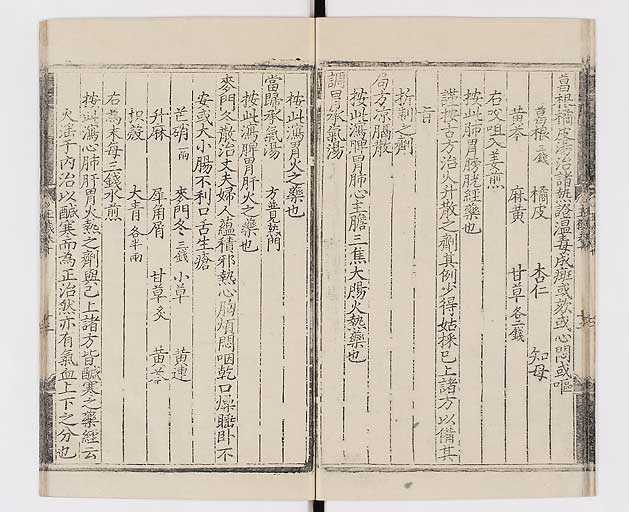 葛根橘皮湯治諸熱證溫毒成斑或欬或心悶或嘔
葛根三錢 橘皮 杏仁 知母
黃芩 麻黃 甘草各二錢
右㕮咀入姜煎
按此肺胃膀胱經藥也
謹按古方治火升散之劑其例少得姑採已上諸方以備其
旨
折制之劑
局方凉膈散
按此瀉脾胃肺心主膽三焦大腸火熱藥也
調胃承氣湯
按此瀉胃火之藥也
當歸承氣湯 方並見熱門
按此瀉脾胃肝火之藥也
麥門冬散治丈夫婦人蘊積邪熱心胸煩悶咽乾口燥睡卧不
安或大小腸不利口舌生瘡
芒硝一兩 麥門冬三錢 小草 黃連
升麻 犀角屑 甘草炙 黃芩
枳殼 大青各半兩
右為末每三錢水煎
按此瀉心肺肝胃火熱之劑與已上諸方皆鹹寒之藥經云
火淫于內治以鹹寒而為正治然亦有氣血上下之分也